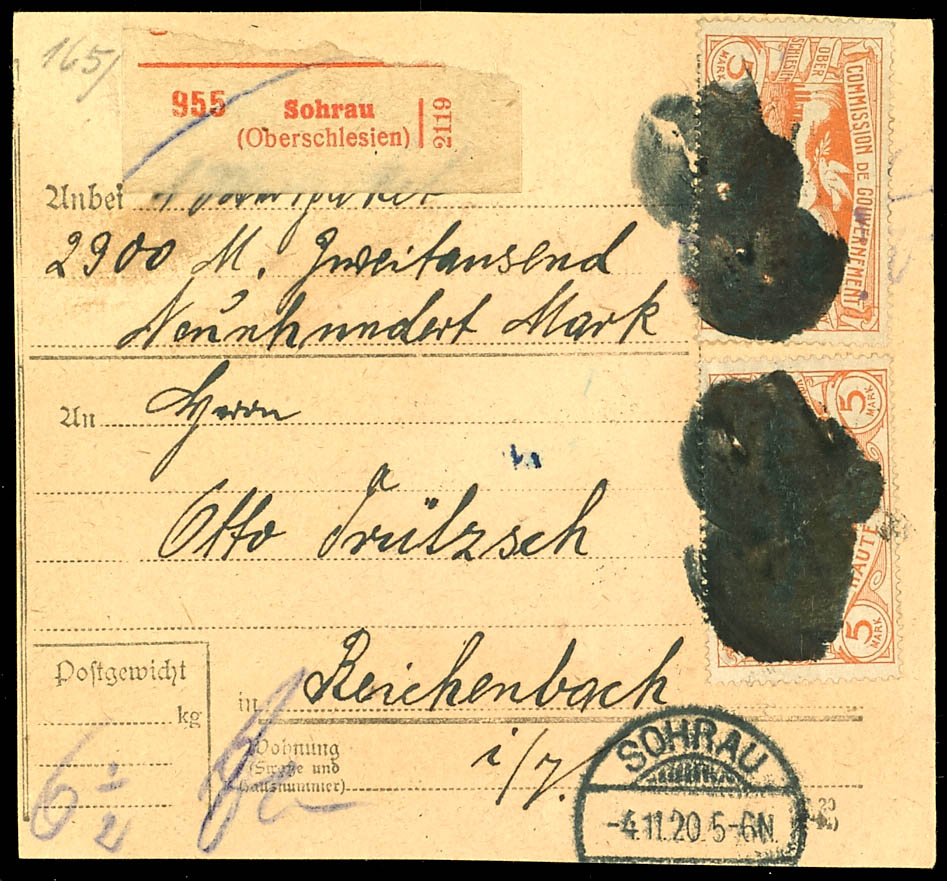 165/
955 Sohrau
(Oberschlesien)
2119
Anbei
2900 M. Zweitausend
Neunhundert Mark
An Herrn
Otto Trültzsch
in Reichenbach
i/V.
Postgewicht
kg
6 1/2
Wohnung
(Straße und
Hausnummer)
5
MARK
OBER
SCHLESIEN
COMMISSION DE GOUVERNEMENT
5
MARK
HAUTE
5
MARK
SOHRAU
-4.11.20.5-6N.